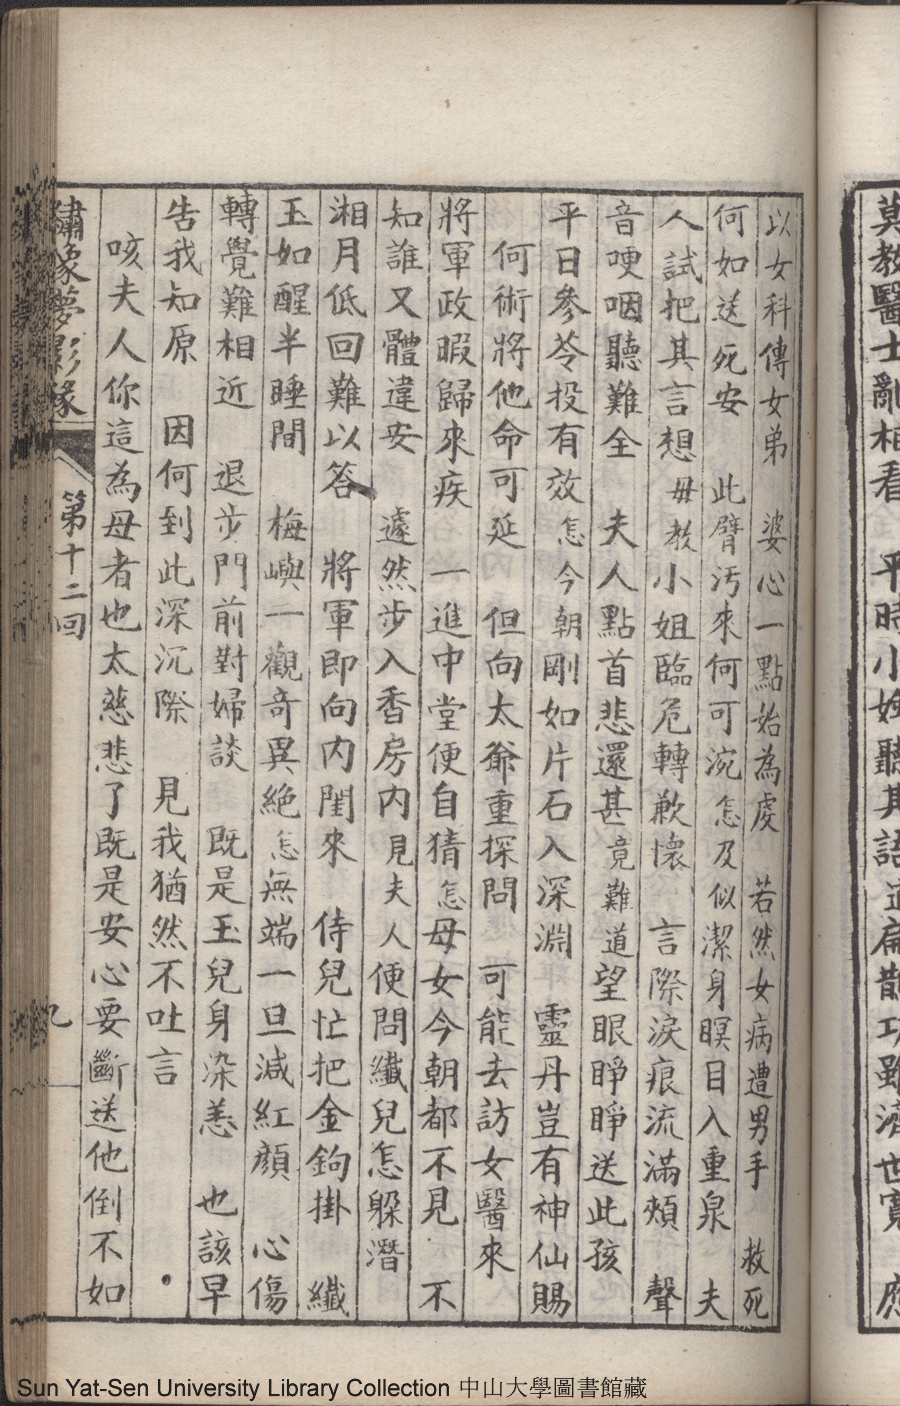 莫教醫士亂相看　平時小姓聽其語　道扁散功雖濟世寬　應
以女科傳女弟　婆心一點始為虔　若然女病遭男手　救死
何如送死安　此臂污來何可涴　怎及似潔身瞑目入重泉　夫
人試把其言想　毋教小姐臨危轉歉懷　言際淚痕流滿頰　聲
音哽咽聽難全　夫人點首悲還甚　竟難道望眼睜睜送此孩
平日參苓投有效　怎今朝剛如片石入深淵　靈丹豈有神仙賜
何術將他命可延　但向太爺重探問　可能去訪女醫來
將軍政暇歸來疾　一進中堂便自猜　怎母女今朝都不見　不
知誰又體違安　遽然步入香房內　見夫人便問纖兒怎躲潛
湘月低回難以答　將軍即向內閨來　侍兒忙把金鉤掛　纖
玉如醒半睡間　梅嶼一觀奇異絕　怎無端一旦減紅顏　心傷
轉覺難相近　退步門前對婦談　既是玉兒身染恙　也該早
告我知原　因何到此深沉際　見我猶然不吐言
咳夫人你這為母者也太慈悲了既是安心要斷送他倒不如
繡像夢影緣
第十二回
九
Sun Yat-Sen University Library Collection 中山大學圖書館藏